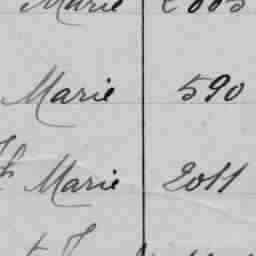 Marie
Marie 590
Marie 2011